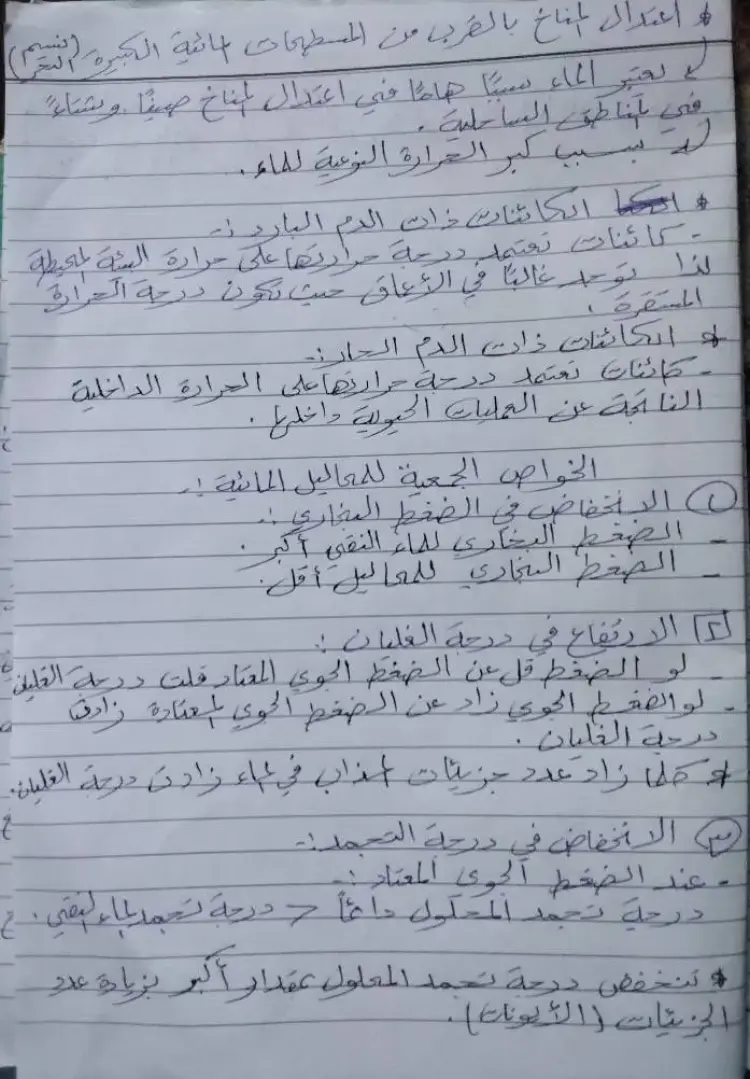 * اعتدال المناخ بالقرب من المسطحات المائية الكبيرة (نسيم البحر)
يعتبر الماء سببًا هامًا في اعتدال المناخ صيفًا وشتاءً
في المناطق الساحلية.
بسبب كبر الحرارة النوعية للماء.
* الكائنات ذات الدم البارد :-
- كائنات تعتمد درجة حرارتها على حرارة البيئة المحيطة
لذا توجد غالبًا في الأعماق حيث تكون درجة الحرارة
المستقرة.
* الكائنات ذات الدم الحار :-
- كائنات تعتمد درجة حرارتها على الحرارة الداخلية
الناتجة عن العمليات الحيوية داخلها.
الخواص الجمعية للمحاليل المائية :-
١ الانخفاض في الضغط البخاري :-
- الضغط البخاري للماء النقي أكبر.
- الضغط البخاري للمحاليل أقل.
٢ الارتفاع في درجة الغليان :
- لو الضغط قل عن الضغط الجوي المعتاد قلت درجة الغليان
- لو الضغط الجوي زاد عن الضغط الجوي المعتادة زادت
درجة الغليان.
* كلما زاد عدد جزيئات المذاب في الماء زادت درجة الغليان.
٣ الانخفاض في درجة التجمد :-
- عند الضغط الجوي المعتاد :-
درجة تجمد المحلول دائمًا < درجة تجمد الماء النقي.
* تنخفض درجة تجمد المحلول بمقدار أكبر بزيادة عدد
الجزيئات (الأيونات).